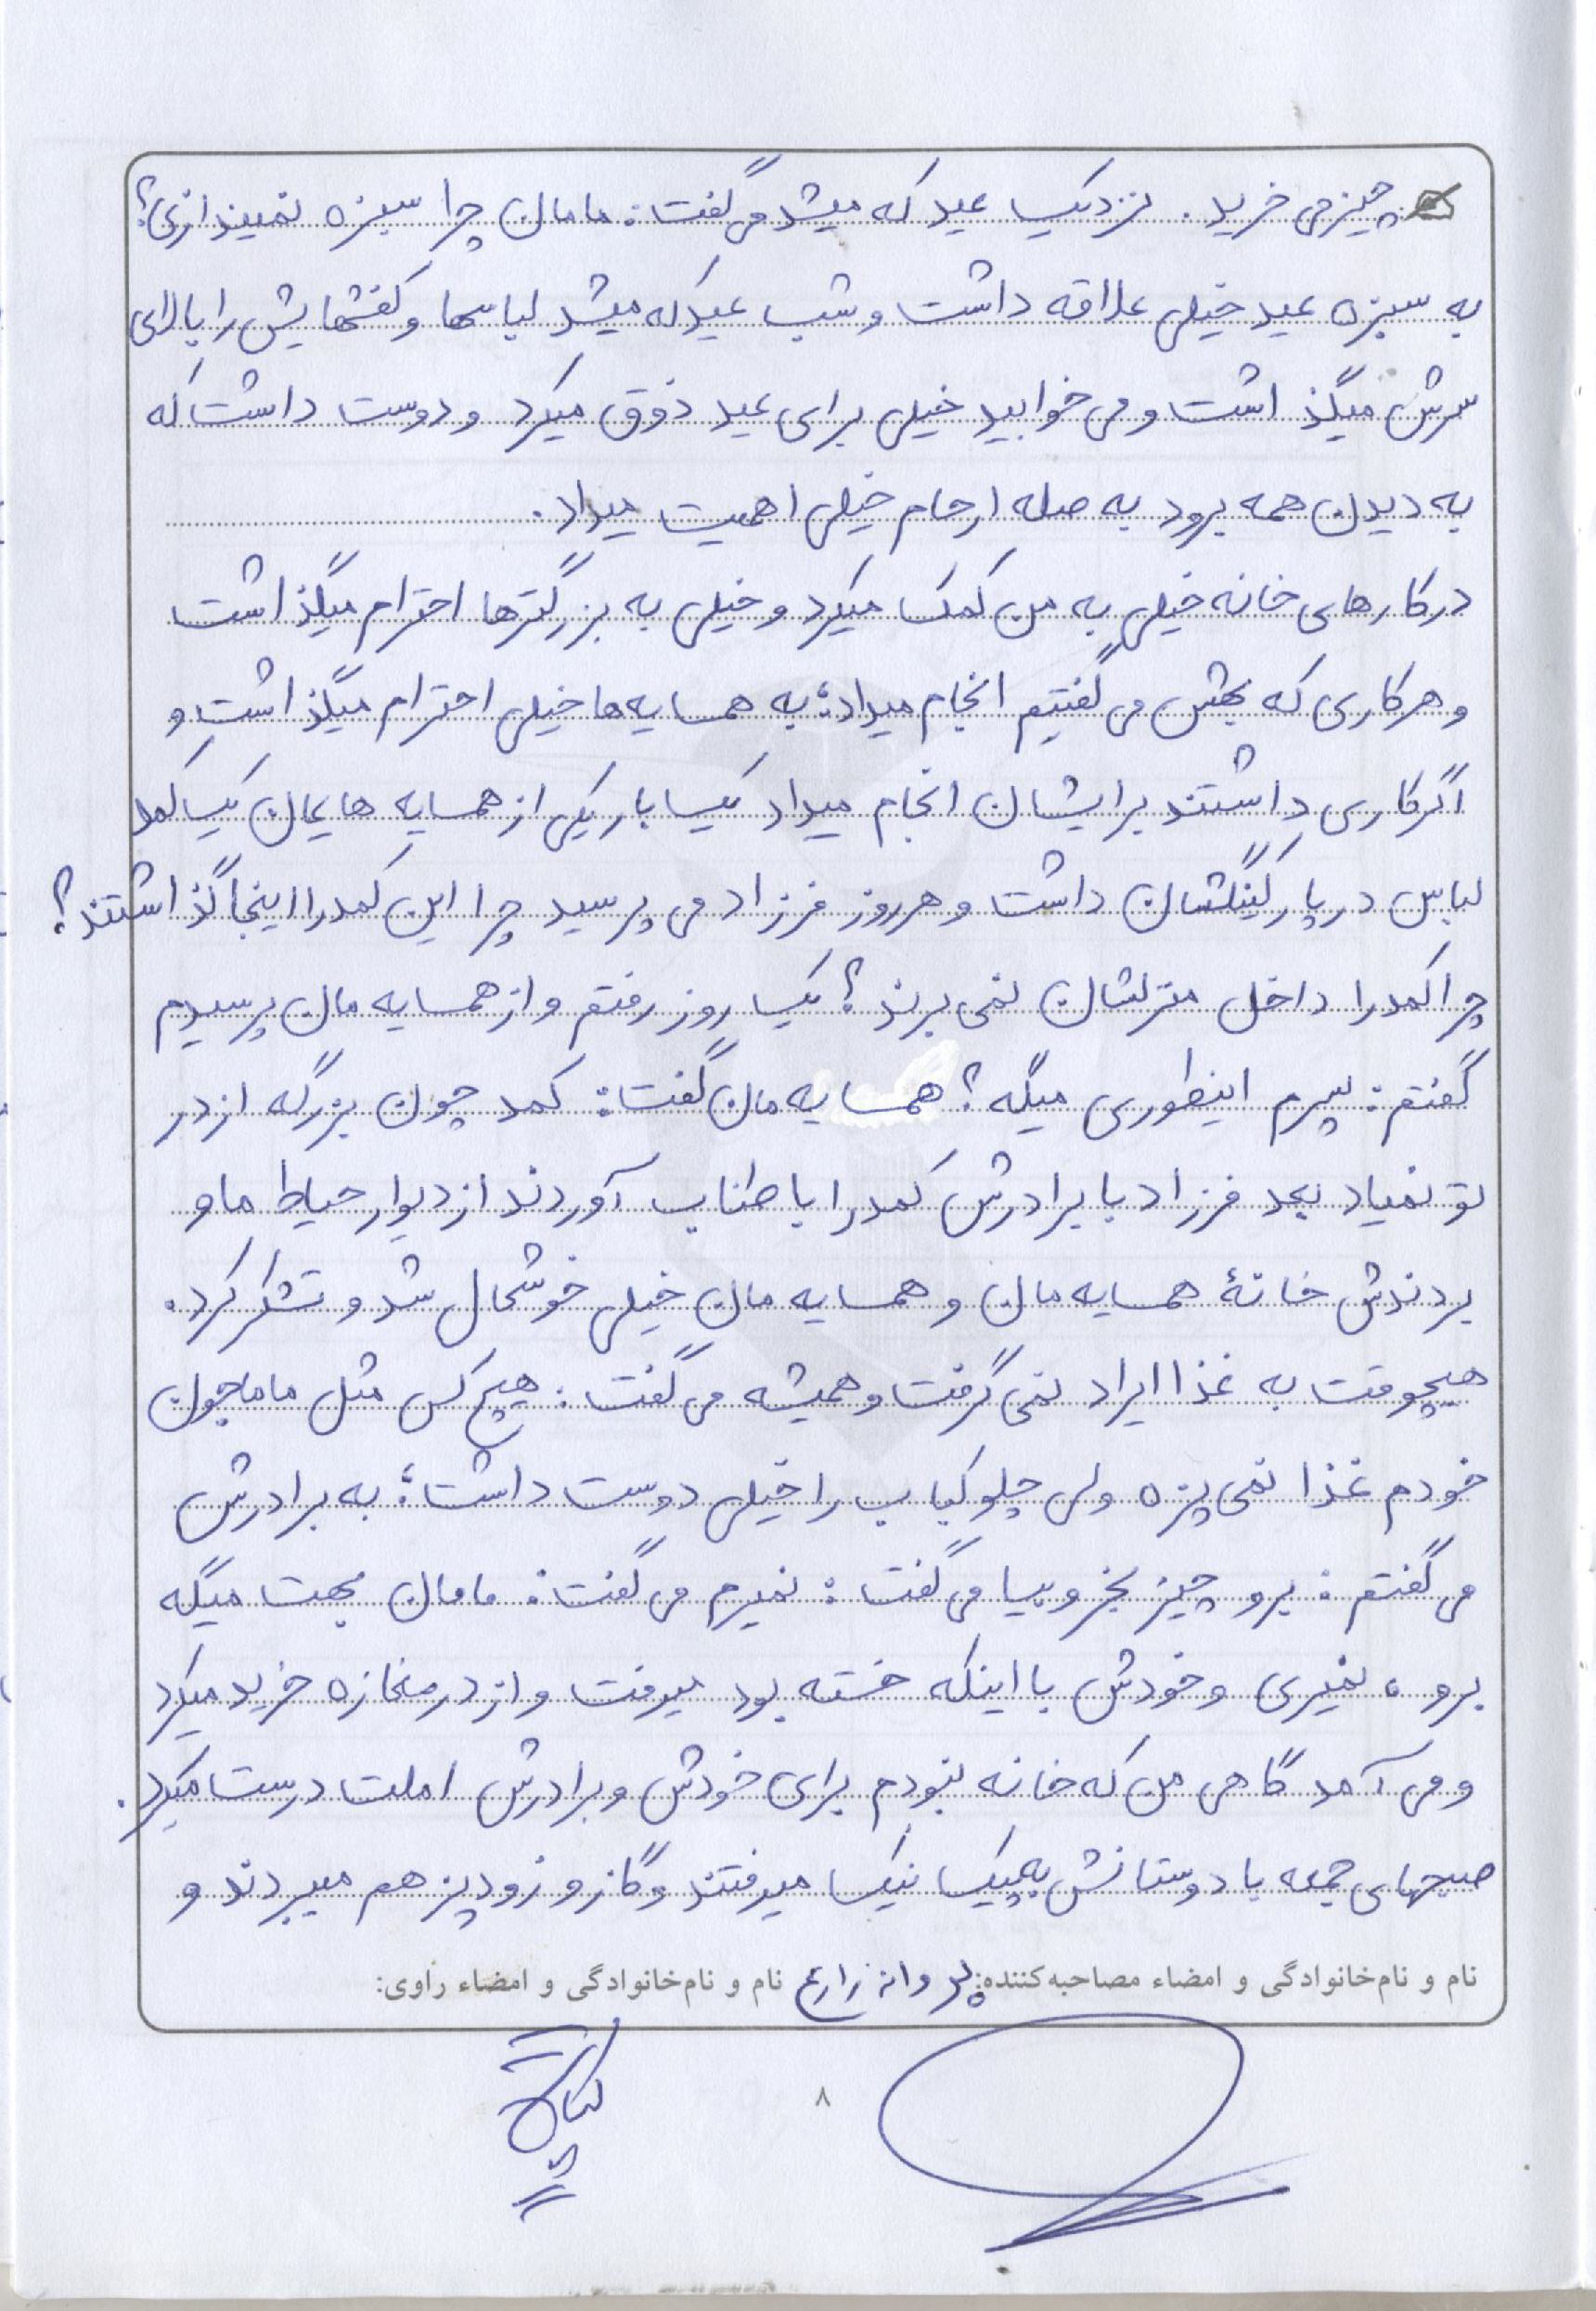 چیز می خرید. نزدیک عید که میشد می گفت: مامان چرا سبزه نمیندازی؟
به سبزه عید خیلی علاقه داشت و شب عید که میشد لباسها و کفشهایش را بالای
سرش میگذاشت و می خوابید خیلی برای عید ذوق میکرد و دوست داشت که
به دیدن همه برود به صله ارحام خیلی اهمیت میداد.
در کارهای خانه خیلی به من کمک میکرد و خیلی به بزرگترها احترام میگذاشت
و هر کاری که بهش می گفتیم انجام میداد؛ به همسایه ها خیلی احترام میگذاشت و
اگر کاری داشتند برایشان انجام میداد یک بار یکی از همسایه هایمان یک کمد
لباس در پارکینگشان داشت و هر روز فرزاد می پرسید چرا این کمد را اینجا گذاشتند؟
چرا کمد را داخل منزلشان نمی برند؟ یک روز رفتم و از همسایه مان پرسیدم
گفتم: پسرم اینطوری میگه؟ همسایه مان گفت: کمد چون بزرگه از در
تو نمیاد بعد فرزاد با برادرش کمد را با طناب آوردند از دیوار حیاط ما و
بردندش خانهٔ همسایه مان و همسایه مان خیلی خوشحال شد و تشکر کرد.
هیچوقت به غذا ایراد نمی گرفت و همیشه می گفت: هیچ کس مثل ماماجون
خودم غذا نمی پزه ولی چلو کباب را خیلی دوست داشت؛ به برادرش
می گفتم: برو چیز بخر و بیا می گفت: نمیرم می گفت: مامان بهت میگه
برو، نمیری و خودش با اینکه خسته بود میرفت و از در مغازه خرید میکرد
و می آمد گاهی من که خانه نبودم برای خودش و برادرش املت درست میکرد.
صبحهای جمعه با دوستانش به پیک نیک میرفتند و گاز و زودپز هم میبردند و
نام و نام‌خانوادگی و امضاء مصاحبه‌کننده: پروانه زارع نام و نام‌خانوادگی و امضاء راوی:
۸